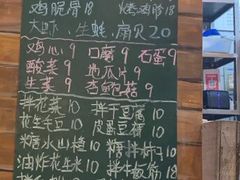 鸡脆骨18 烤鸡翅18
大虾、生蚝、扇贝20
鸡心9 口腐9 石蛋9
酸菜9 地瓜片9
生菜9 杏鲍菇9
拌花菜10 拌干豆腐10
花生毛豆10 皮蛋豆腐10
糖水山楂10 糖拌柿子10
油炸花生米10 拌板筋